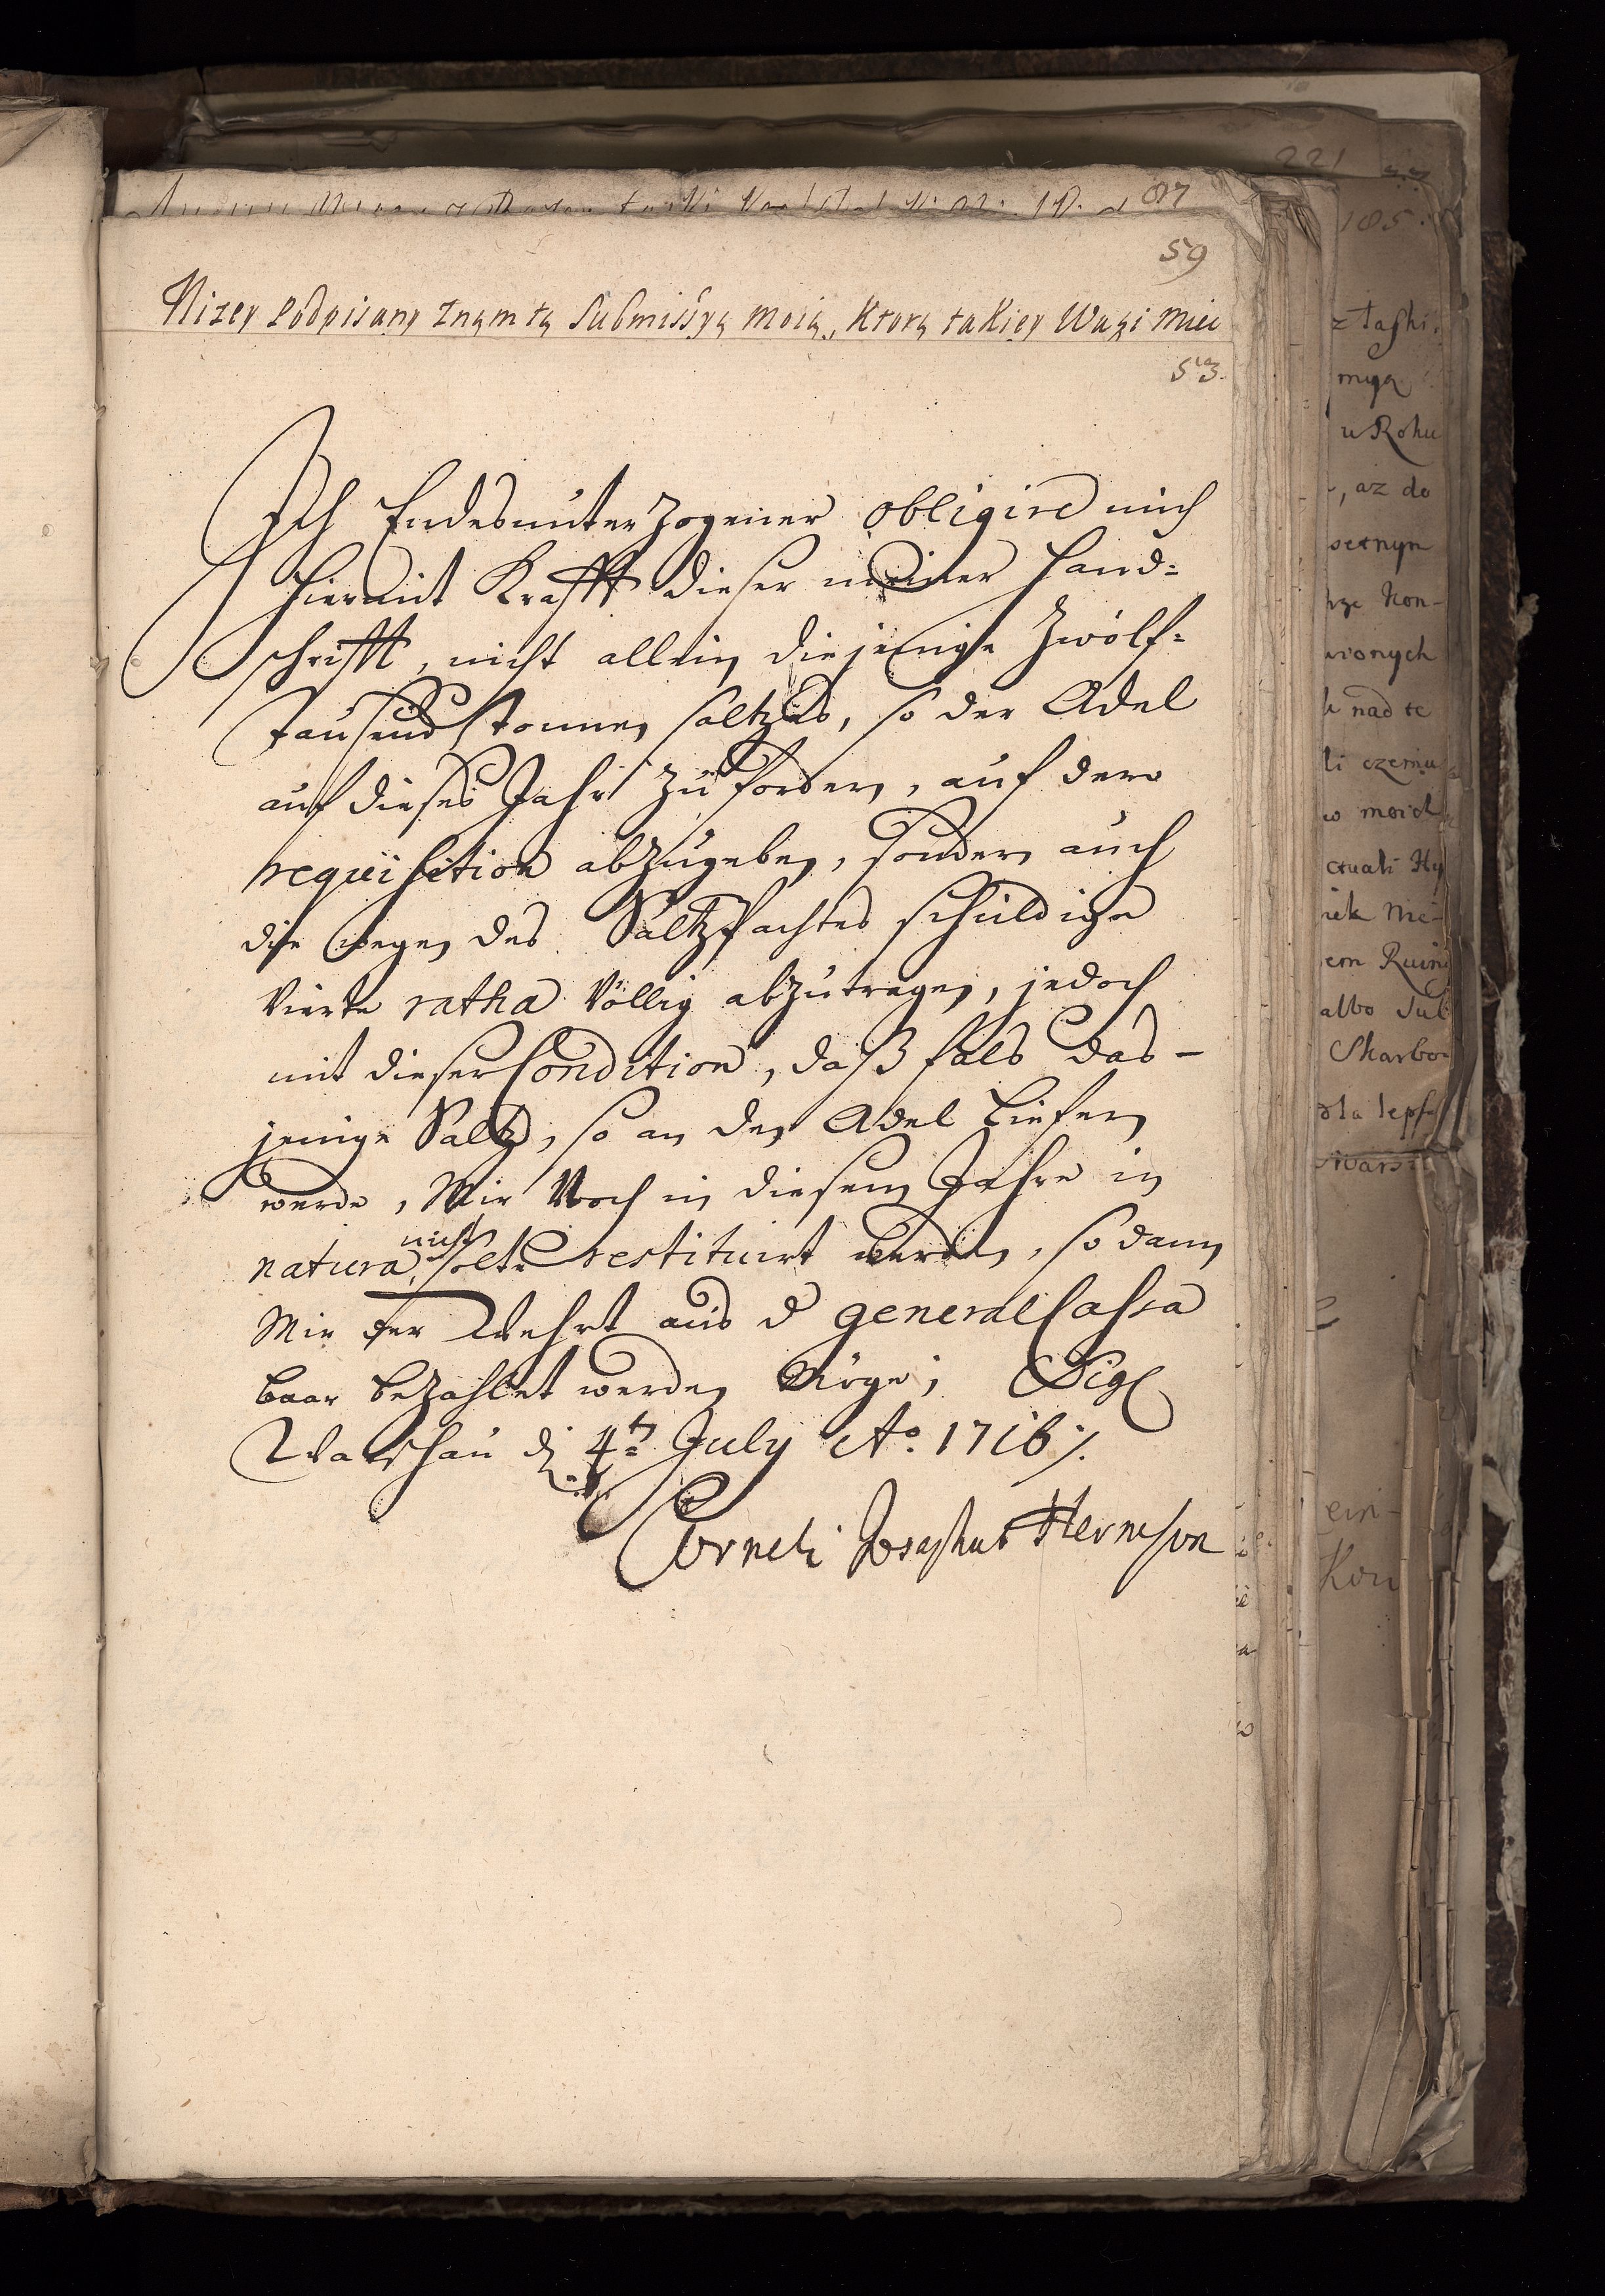 87
59
Nizey Podpisany Znąm tą Submissyą moią, Ktorą takiey Wagi miec
53.
Ich Endesunterzogener obligire mich
hiermit Krafft dieser meiner Hand=
schrifft, nicht allein diejenige Zwölf=
tausend tonnen saltzes, so der Adel
auf dieses Jahr zu fordern, auf dero
requisition abzugeben, sondern auch
die wegen des Saltzpachtes schuldige
Vierte ratha Völlig abzutragen, jedoch
mit dieser Condition, daß fals das-
jenige Saltz, so an den Adel liefern
werde, Mir Noch in diesem Jahre in
natura nicht solte restituirt werden, so dann
Mir der Wehrt aus d general Cassa
baar bezahlet werden möge; Sigl
Warschau d 4t July Ao. 1716 ٪.
Corneli Josephus Herneson
221
185
z taski
mya
u Roku
, az do
Kon-
wionych
nad te
li czemu
w moich
ctuali Hy
Me-
em Ruin
albo Sub
Skarbo-
Kon